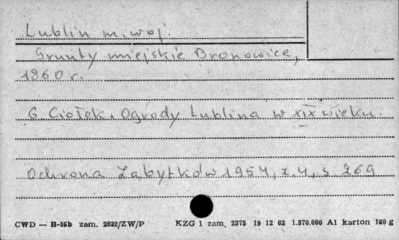 Lublin m. woj.
Grunty miejskie Bronowice,
1860 r.
G. Ciołek, Ogrody Lublina w XIX wieku.
Ochrona Zabytków 1954, z. 4, s. 269
CWD — H-16b zam. 2832/ZW/P KZG 1 zam. 2375 19 12 62 1.570.000 A1 karton 180 g